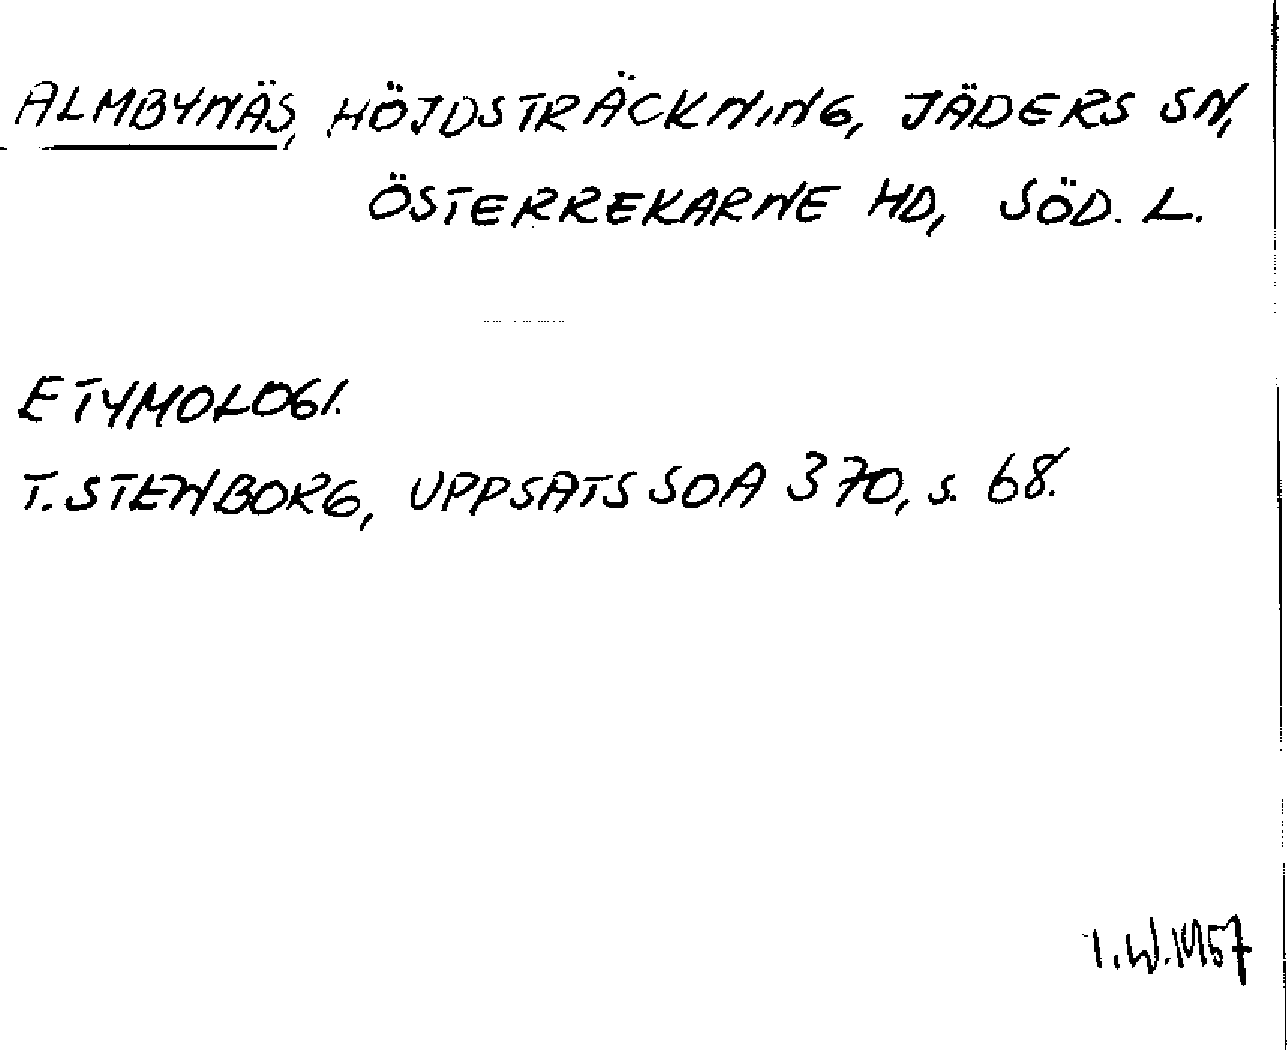 ALMBYNÄS, HÖJDSTRÄCKNING, JÄDERS SN,
ÖSTERREKARNE HD, SÖD. L.
ETYMOLOGI.
T. STENBORG, UPPSATS SOA 370, s. 68.
I.W. 1957